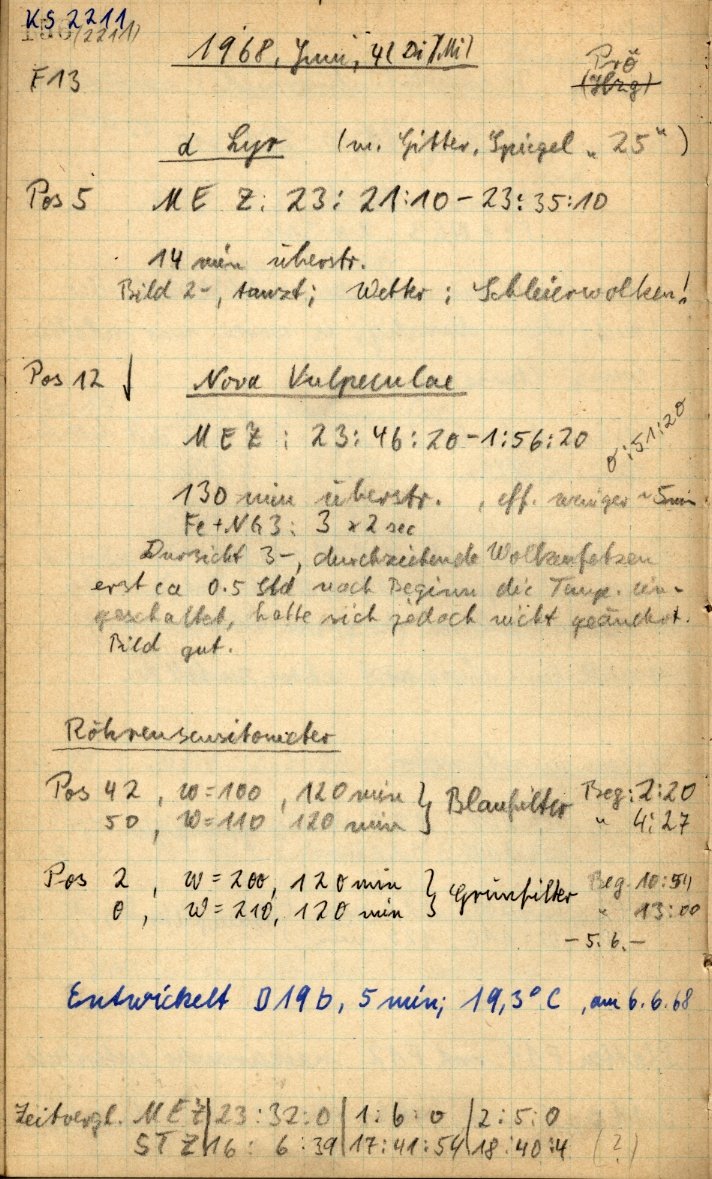 KS 2211
(2211)
1968, Juni, 4 (Di/Mi)
F13
Prö
(Hzg)
α Lyr (m. Gitter, Spiegel „25“)
Pos 5 MEZ: 23:21:10-23:35:10
14 min überstr.
Bild 2-, tanzt; Wetter: Schleierwolken!
Pos 12 ↓ Nova Vulpeculae
MEZ: 23:46:20-1:56:20
0:51:20
130 min überstr., eff. weniger ~5min
Fe+NG3: 3 x 2 sec
Dursicht 3-, durchziehende Wolkenfetzen
erst ca 0.5 Std nach Beginn die Temp. ein-
geschaltet, hatte sich jedoch nicht geändert.
Bild gut.
Röhrensensitometer
Pos 42, w=100, 120 min } Blaufilter Beg: 2:20
50, w=110 120 min " 4:27
Pos 2, w=200, 120 min } Grünfilter Beg. 10:54
0, w=210, 120 min " 13:00
- 5. 6. -
Entwickelt D19b, 5 min; 19,3°C, am 6.6.68
Zeitvergl. MEZ | 23:32:0 | 1:6:0 | 2:5:0
STZ | 16:6:39 | 17:41:54 | 18:40:4 (?)